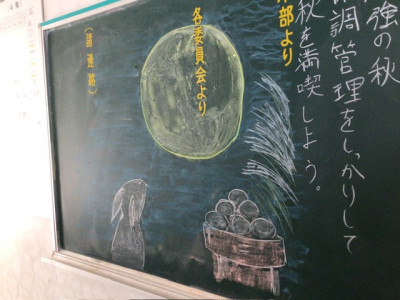 強の秋
調管理をしっかりして
秋を満喫しよう。
部より
各委員会より
(諸連絡)